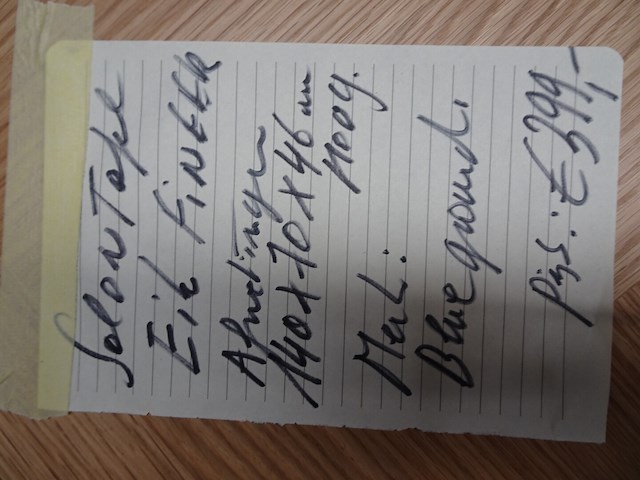 SalonTafel
Eik FiNEER
Afmetingen
140x70x46 cm
Hoog.
Merk:
Blueground.
Prijs: € 399,-